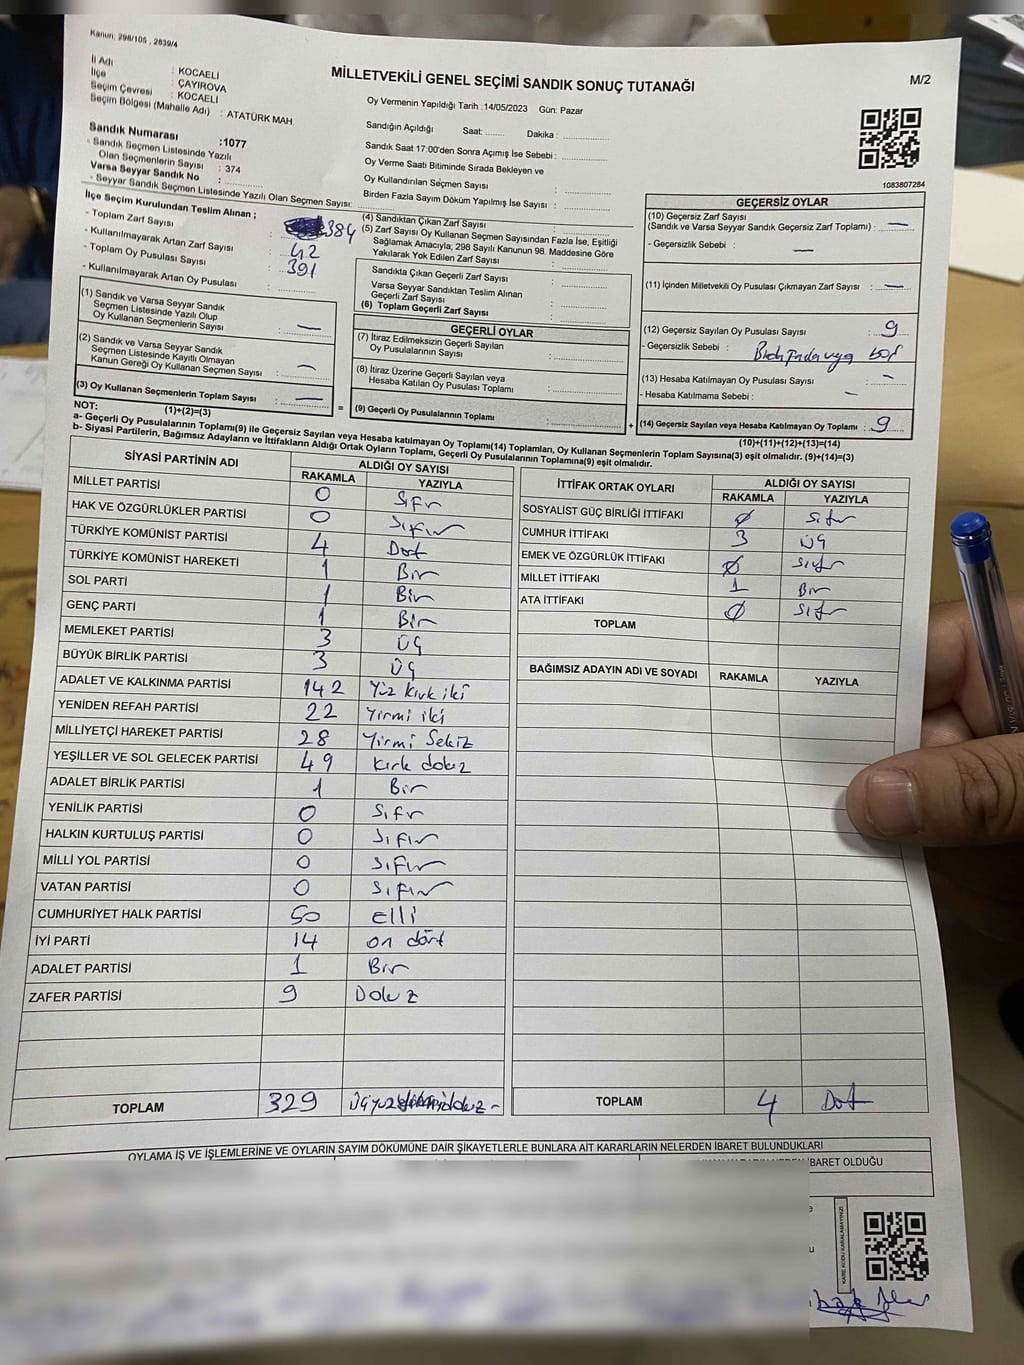 Kanun, 298/105 , 2839/4
MİLLETVEKİLİ GENEL SEÇİMİ SANDIK SONUÇ TUTANAĞI
M/2
İl Adı : KOCAELİ
İlçe : ÇAYIROVA
Seçim Çevresi : KOCAELİ
Seçim Bölgesi (Mahalle Adı) : ATATÜRK MAH.
Sandık Numarası :1077
- Sandık Seçmen Listesinde Yazılı
Olan Seçmenlerin Sayısı : 374
Varsa Seyyar Sandık No :
- Seyyar Sandık Seçmen Listesinde Yazılı Olan Seçmen Sayısı:
Oy Vermenin Yapıldığı Tarih :14/05/2023 Gün: Pazar
Sandığın Açıldığı Saat: Dakika :
Sandık Saat 17:00'den Sonra Açımış İse Sebebi :
Oy Verme Saati Bitiminde Sırada Bekleyen ve
Oy Kullandırılan Seçmen Sayısı :
Birden Fazla Sayım Döküm Yapılmış İse Sayısı :
1083807284
İlçe Seçim Kurulundan Teslim Alınan ;
- Toplam Zarf Sayısı : 384
- Kullanılmayarak Artan Zarf Sayısı : 42
- Toplam Oy Pusulası Sayısı : 391
- Kullanılmayarak Artan Oy Pusulası :
(1) Sandık ve Varsa Seyyar Sandık
Seçmen Listesinde Yazılı Olup
Oy Kullanan Seçmenlerin Sayısı : —
(2) Sandık ve Varsa Seyyar Sandık
Seçmen Listesinde Kayıtlı Olmayan
Kanun Gereği Oy Kullanan Seçmen Sayısı : —
(3) Oy Kullanan Seçmenlerin Toplam Sayısı : —
(1)+(2)=(3)
(4) Sandıktan Çıkan Zarf Sayısı :
(5) Zarf Sayısı Oy Kullanan Seçmen Sayısından Fazla İse, Eşitliği
Sağlamak Amacıyla; 298 Sayılı Kanunun 98. Maddesine Göre
Yakılarak Yok Edilen Zarf Sayısı :
Sandıkta Çıkan Geçerli Zarf Sayısı :
Varsa Seyyar Sandıktan Teslim Alınan
Geçerli Zarf Sayısı :
(6) Toplam Geçerli Zarf Sayısı :
GEÇERLİ OYLAR
(7) İtiraz Edilmeksizin Geçerli Sayılan
Oy Pusulalarının Sayısı :
(8) İtiraz Üzerine Geçerli Sayılan veya
Hesaba Katılan Oy Pusulası Toplamı :
= (9) Geçerli Oy Pusulalarının Toplamı : +
GEÇERSİZ OYLAR
(10) Geçersiz Zarf Sayısı
(Sandık ve Varsa Seyyar Sandık Geçersiz Zarf Toplamı) : —
- Geçersizlik Sebebi : —
(11) İçinden Milletvekili Oy Pusulası Çıkmayan Zarf Sayısı : —
(12) Geçersiz Sayılan Oy Pusulası Sayısı : 9
- Geçersizlik Sebebi :
(13) Hesaba Katılmayan Oy Pusulası Sayısı : —
- Hesaba Katılmama Sebebi : —
(14) Geçersiz Sayılan veya Hesaba Katılmayan Oy Toplamı : 9
(10)+(11)+(12)+(13)=(14)
NOT:
a- Geçerli Oy Pusulalarının Toplamı(9) ile Geçersiz Sayılan veya Hesaba katılmayan Oy Toplamı(14) Toplamları, Oy Kullanan Seçmenlerin Toplam Sayısına(3) eşit olmalıdır. (9)+(14)=(3)
b- Siyasi Partilerin, Bağımsız Adayların ve İttifakların Aldığı Ortak Oyların Toplamı, Geçerli Oy Pusulalarının Toplamına(9) eşit olmalıdır.
SİYASİ PARTİNİN ADI ALDIĞI OY SAYISI
RAKAMLA YAZIYLA
MİLLET PARTİSİ 0 Sıfır
HAK VE ÖZGÜRLÜKLER PARTİSİ 0 Sıfır
TÜRKİYE KOMÜNİST PARTİSİ 4 Dört
TÜRKİYE KOMÜNİST HAREKETİ 1 Bir
SOL PARTİ 1 Bir
GENÇ PARTİ 1 Bir
MEMLEKET PARTİSİ 3 üç
BÜYÜK BİRLİK PARTİSİ 3 üç
ADALET VE KALKINMA PARTİSİ 142 Yüz kırk iki
YENİDEN REFAH PARTİSİ 22 yirmi iki
MİLLİYETÇİ HAREKET PARTİSİ 28 yirmi Sekiz
YEŞİLLER VE SOL GELECEK PARTİSİ 49 kırk dokuz
ADALET BİRLİK PARTİSİ 1 Bir
YENİLİK PARTİSİ 0 Sıfır
HALKIN KURTULUŞ PARTİSİ 0 Sıfır
MİLLİ YOL PARTİSİ 0 Sıfır
VATAN PARTİSİ 0 Sıfır
CUMHURİYET HALK PARTİSİ 50 elli
İYİ PARTİ 14 on dört
ADALET PARTİSİ 1 Bir
ZAFER PARTİSİ 9 Dokuz
TOPLAM 329
İTTİFAK ORTAK OYLARI ALDIĞI OY SAYISI
RAKAMLA YAZIYLA
SOSYALİST GÜÇ BİRLİĞİ İTTİFAKI 0 Sıfır
CUMHUR İTTİFAKI 3 üç
EMEK VE ÖZGÜRLÜK İTTİFAKI 0 Sıfır
MİLLET İTTİFAKI 1 Bir
ATA İTTİFAKI 0 Sıfır
TOPLAM
BAĞIMSIZ ADAYIN ADI VE SOYADI RAKAMLA YAZIYLA
TOPLAM 4 Dört
OYLAMA İŞ VE İŞLEMLERİNE VE OYLARIN SAYIM DÖKÜMÜNE DAİR ŞİKAYETLERLE BUNLARA AİT KARARLARIN NELERDEN İBARET BULUNDUKLARI
İBARET OLDUĞU
KARE KODU KARALAMAYINIZ!